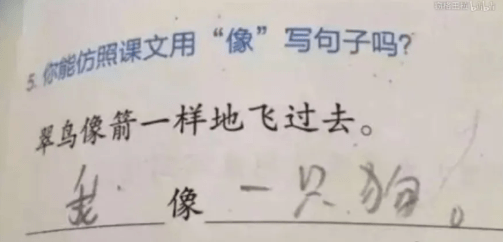 5. 你能仿照课文用“像”写句子吗？
翠鸟像箭一样地飞过去。
我像一只狗。